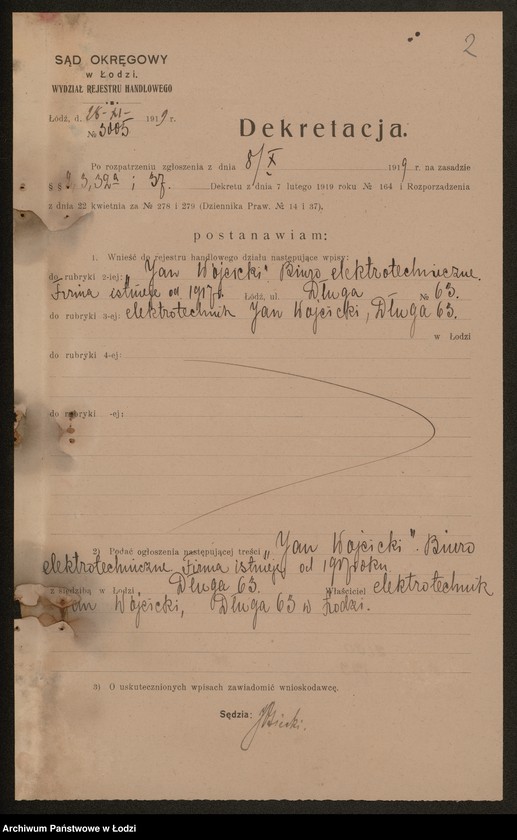 2
SĄD OKRĘGOWY
w Łodzi.
WYDZIAŁ REJESTRU HANDLOWEGO
Łódź, d. 28-XI- 1919 r.
№ 3005
Dekretacja.
Po rozpatrzeniu zgłoszenia z dnia 8/X 1919 r. na zasadzie
§ § 3, 32a i 37. Dekretu z dnia 7 lutego 1919 roku № 164 i Rozporządzenia
z dnia 22 kwietnia za № 278 i 279 (Dziennika Praw. № 14 i 37).
postanawiam:
1. Wnieść do rejestru handlowego działu następujące wpisy:
do rubryki 2-iej: „Jan Wójcicki" Biuro elektrotechniczne.
Firma istnieje od 1917 r. Łódź, ul. Długa № 63.
do rubryki 3-ej: elektrotechnik Jan Wójcicki, Długa 63.
w Łodzi
do rubryki 4-ej:
do rubryki -ej:
2) Podać ogłoszenia następującej treści „Jan Wójcicki". Biuro
elektrotechniczne. Firma istnieje od 1917 roku
z siedzibą w Łodzi, Długa 63. Właściciel elektrotechnik
Jan Wójcicki, Długa 63 w Łodzi.
3) O uskutecznionych wpisach zawiadomić wnioskodawcę.
Sędzia:
Archiwum Państwowe w Łodzi